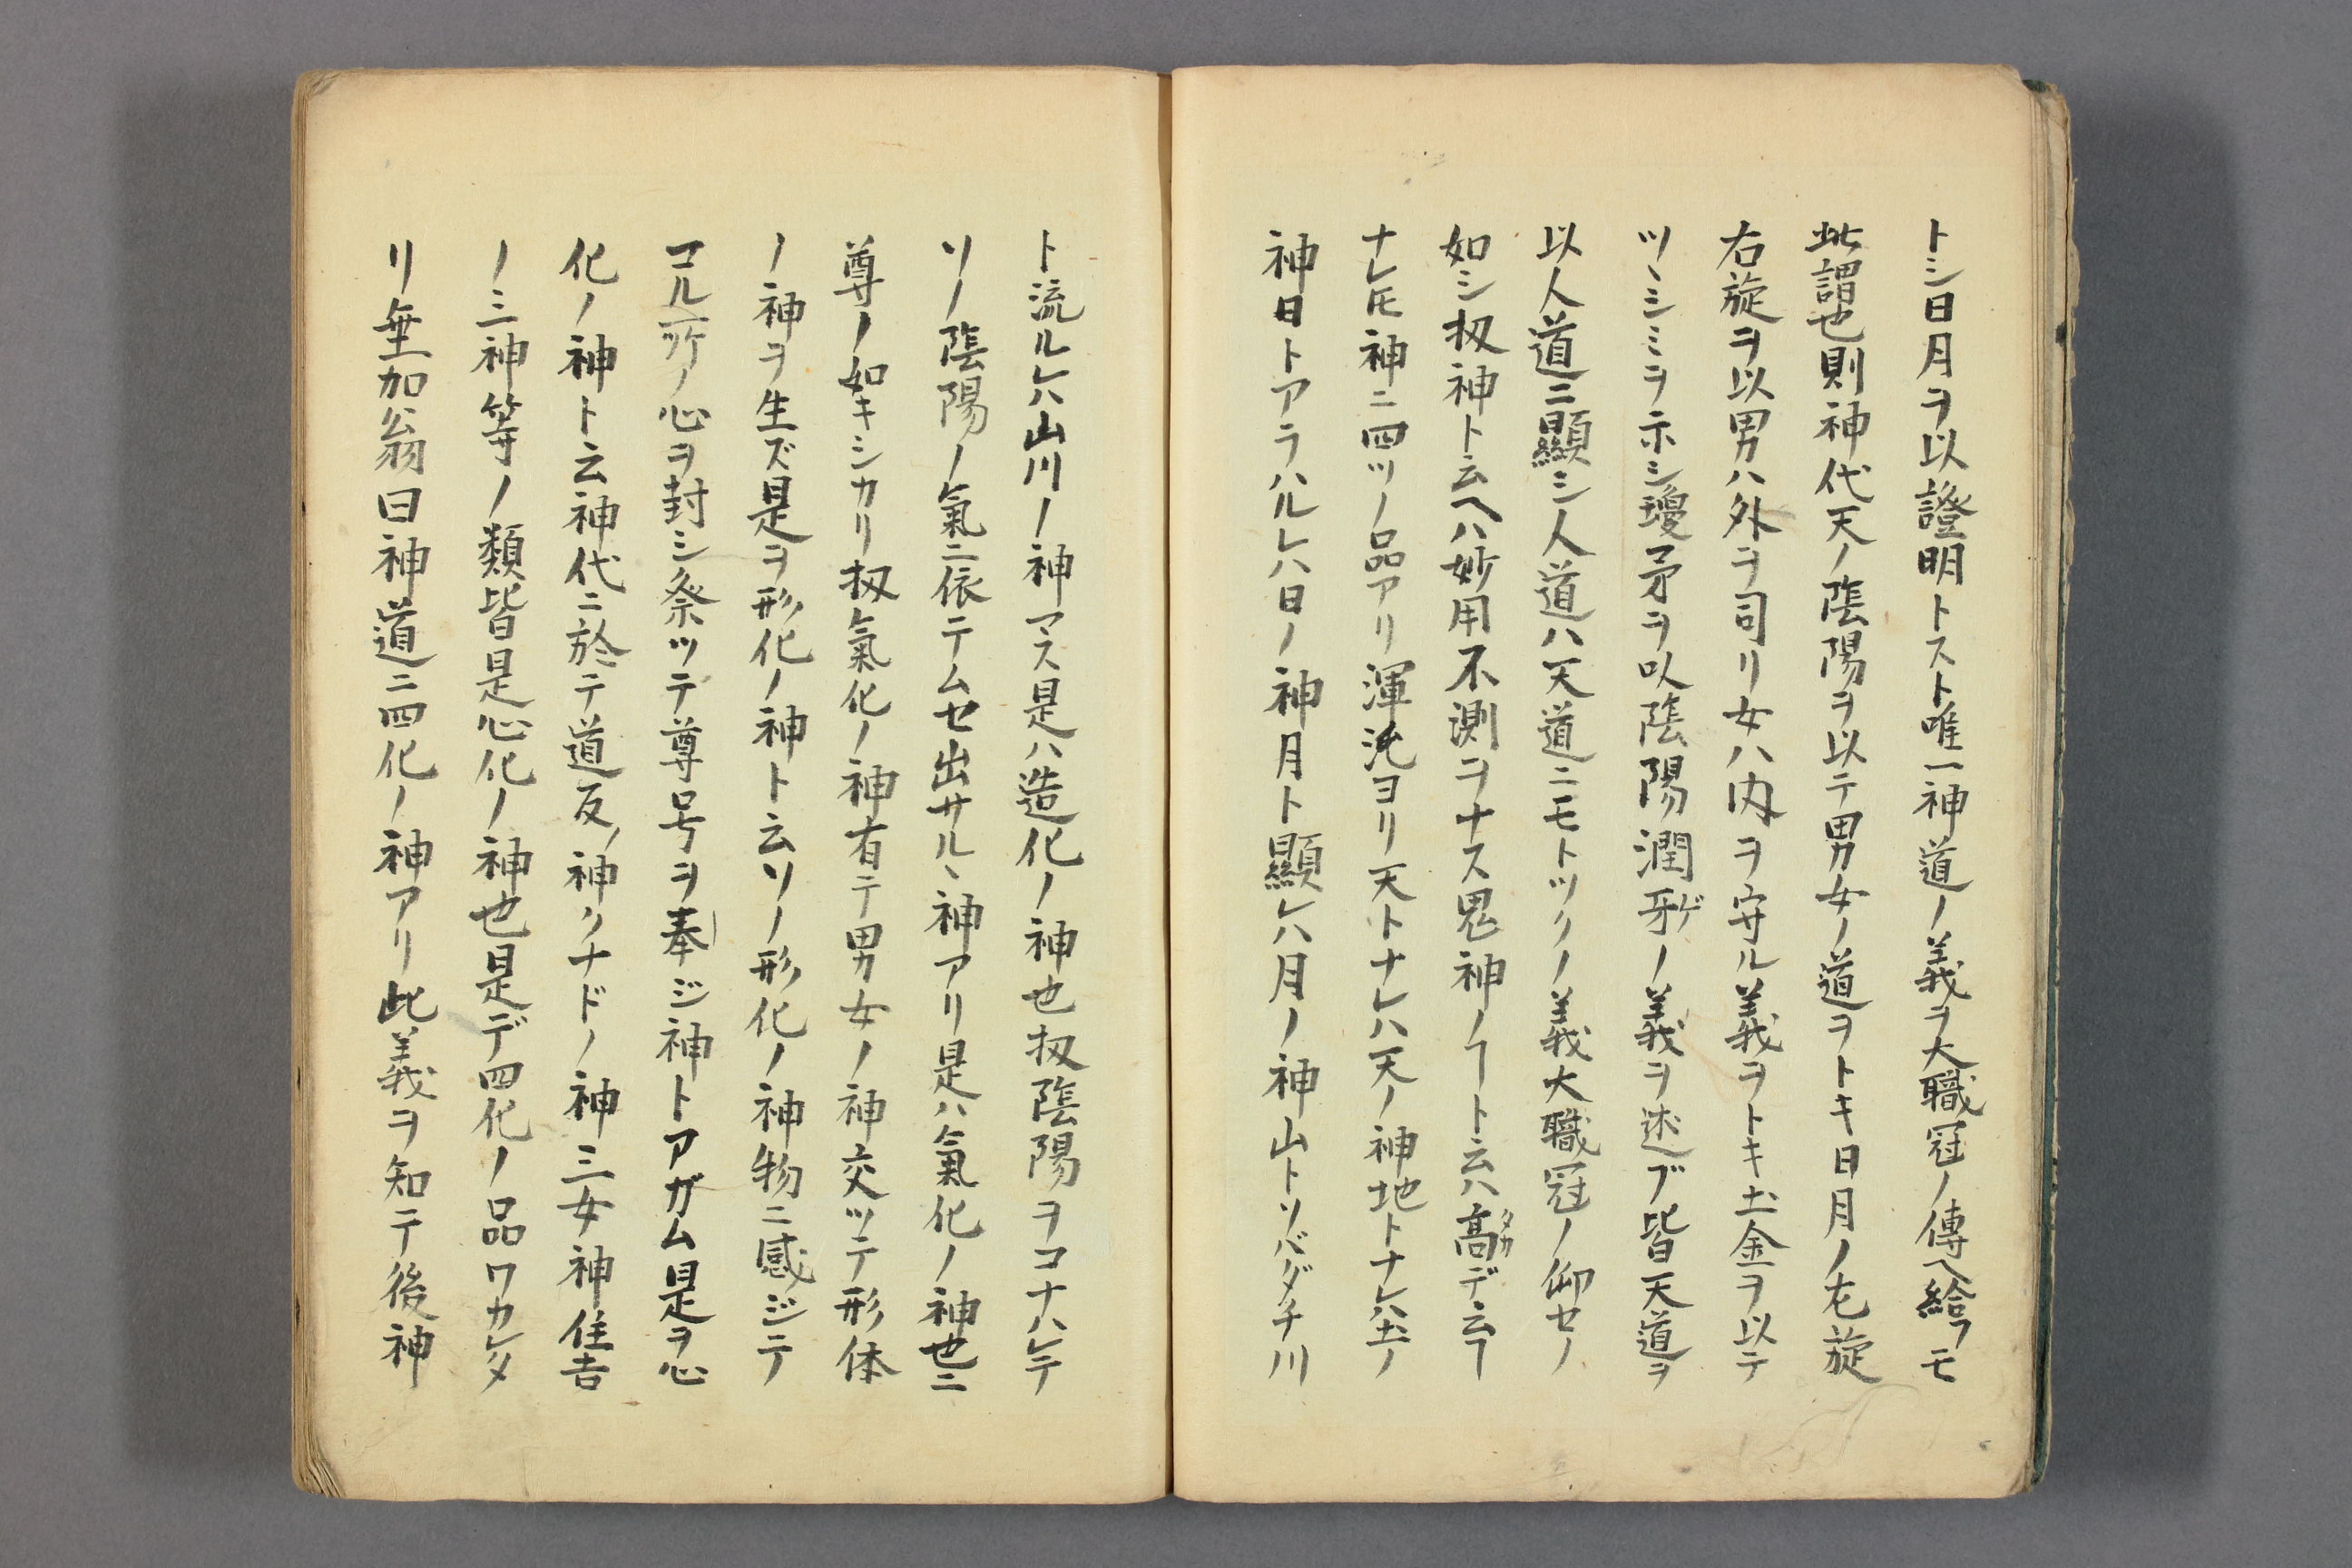 トシ日月ヲ以證明トスト唯一神道ノ義ヲ大職冠ノ傳ヘ給フモ
此謂也則神代天ノ陰陽ヲ以テ男女ノ道ヲトキ日月ノ左旋
右旋ヲ以男ハ外ヲ司リ女ハ内ヲ守ル義ヲトキ土金ヲ以テ
ツヽシミヲ示シ瓊矛ヲ以陰陽潤牙ゲノ義ヲ述ブ皆天道ヲ
以人道ニ顯シ人道ハ天道ニモトツクノ義大職冠ノ仰セノ
如シ扨神ト云ヘハ妙用不測ヲナス鬼神ノヿト云ハ高タカデ云ヿ
ナレ𪜈神ニ四ツノ品アリ渾沌ヨリ天トナレハ天ノ神地トナレハ土ノ
神日トアラハルレハ日ノ神月ト顯レハ月ノ神山トソバダチ川
ト流ルレハ山川ノ神マス是ハ造化ノ神也扨陰陽ヲコナハレテ
ソノ陰陽ノ氣ニ依テムセ出サルヽ神アリ是ハ氣化ノ神也ニ
尊ノ如キシカリ扨氣化ノ神有テ男女ノ神交ツテ形体
ノ神ヲ生ズ是ヲ形化ノ神ト云ソノ形化ノ神物ニ感ジテ
コル所ノ心ヲ封シ祭ツテ尊号ヲ奉ジ神トアガム是ヲ心
化ノ神ト云神代ニ於テ道反ノ神クナドノ神三女神住吉
ノ三神等ノ類皆是心化ノ神也是デ四化ノ品ワカレタ
リ垂加翁曰神道ニ四化ノ神アリ此義ヲ知テ後神